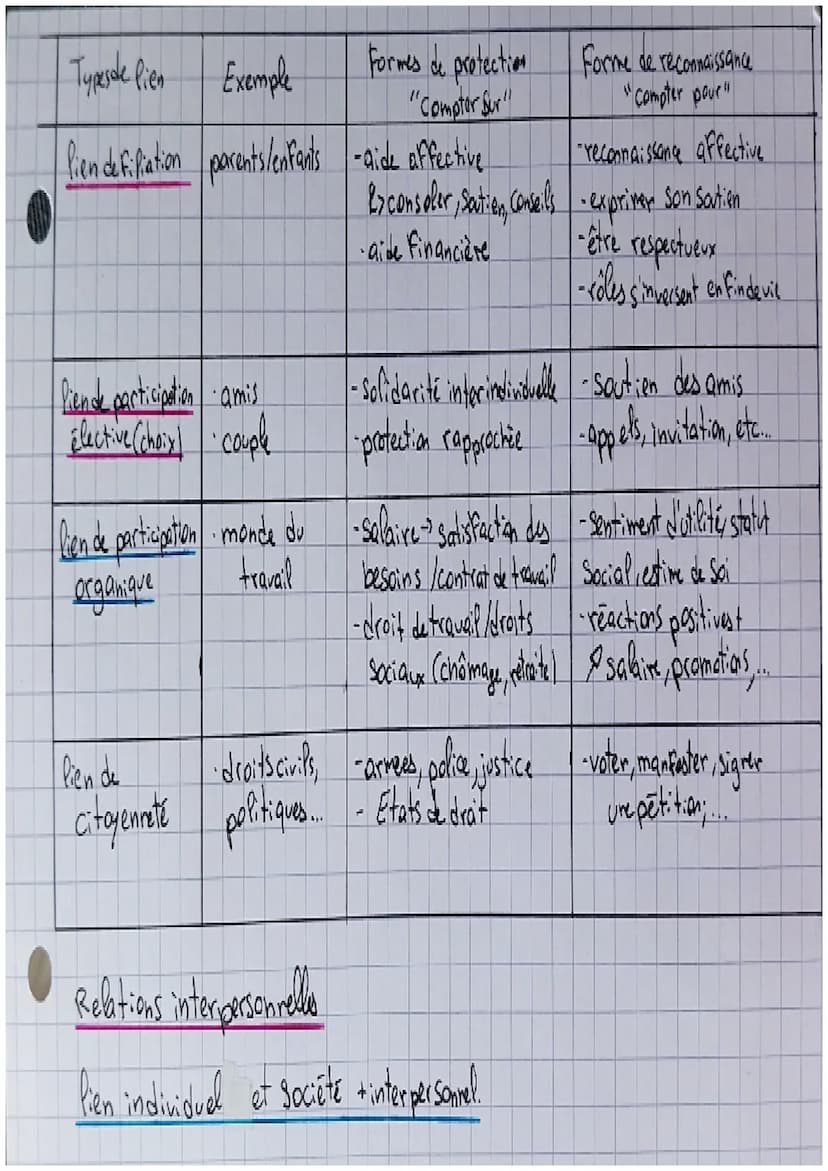 Types de lien
Exemple
Formes de protection
"Compter sur"
Forme de reconnaissance
"compter pour"
lien de filiation
parents/enfants
-aide affective
↳consoler, soutien, conseils
-aide financière
-reconnaissance affective
-exprimer son soutien
-être respectueux
-rôles s'inversent en fin de vie
lien de participation
élective (choix)
·amis
·couple
-solidarité interindividuelle
-protection rapprochée
-soutien des amis
-appels, invitation, etc...
lien de participation
organique
·monde du
travail
-salaire→ satisfaction des
besoins /contrat de travail
-droit de travail/droits
sociaux (chômage, retraite)
-sentiment d'utilité, statut
social, estime de soi
-réactions positives t
↗ salaire, promotions,...
lien de
citoyenneté
·droits civils,
politiques...
-armées, police, justice
- États de droit
-voter, manifester, signer
une pétition,...
Relations interpersonnelles
lien individuel et société + interpersonnel.